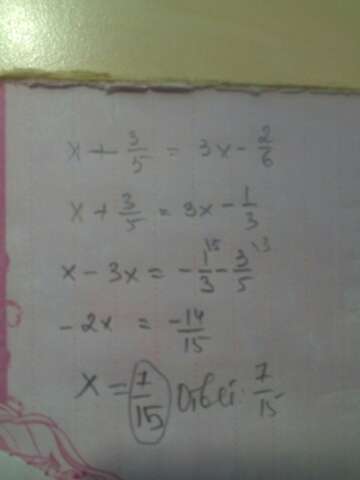 x + 3/5 = 3x - 2/6
x + 3/5 = 3x - 1/3
x - 3x = - 1/3 \5 - 3/5 \3
- 2x = -14/15
x = 7/15 Ответ: 7/15